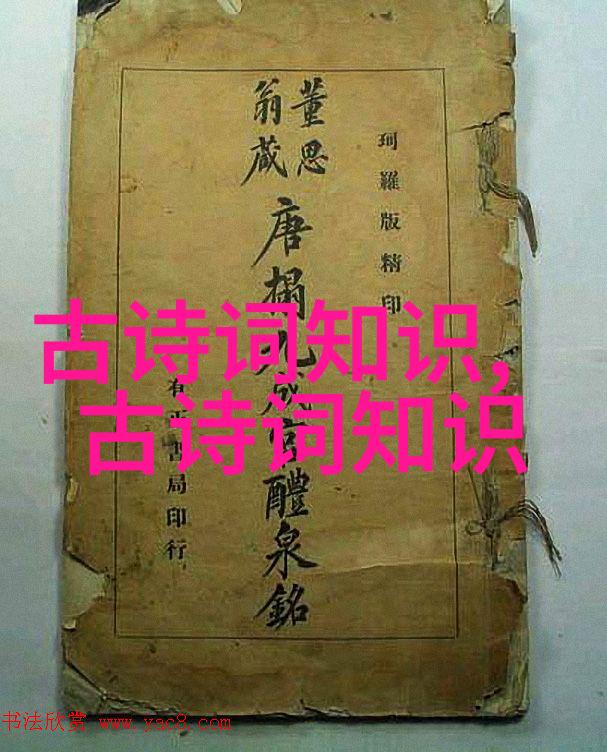 珂羅版精印
董思
翁藏
唐榻九成宮醴泉銘
有正書局印行
古诗词知识,
古诗词知识
书法欣赏 www.yac8.com